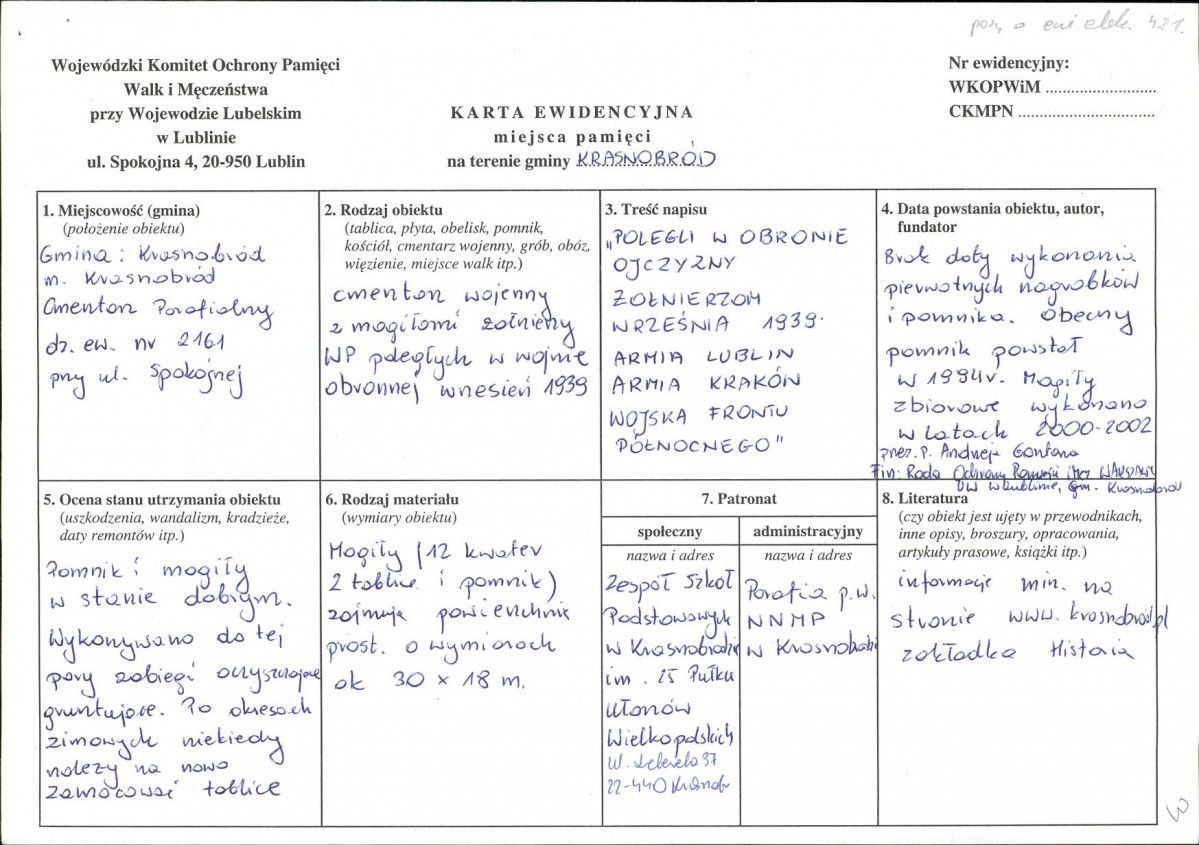 poz. o ewi elek. 421.
Wojewódzki Komitet Ochrony Pamięci
Walk i Męczeństwa
przy Wojewodzie Lubelskim
w Lublinie
ul. Spokojna 4, 20-950 Lublin
KARTA EWIDENCYJNA
miejsca pamięci
na terenie gminy KRASNOBRÓD
Nr ewidencyjny:
WKOPWiM ..........................
CKMPN ................................
1. Miejscowość (gmina)
(położenie obiektu)
Gmina: Krasnobród
m. Krasnobród
Cmentarz Parafialny
dz. ew. nr 2161
przy ul. Spokojnej
2. Rodzaj obiektu
(tablica, płyta, obelisk, pomnik,
kościół, cmentarz wojenny, grób, obóz,
więzienie, miejsce walk itp.)
cmentarz wojenny
z mogiłami żołnierzy
WP poległych w wojnie
obronnej wrzesień 1939
3. Treść napisu
„POLEGLI W OBRONIE
OJCZYZNY
ŻOŁNIERZOM
WRZEŚNIA 1939.
ARMIA LUBLIN
ARMIA KRAKÓW
WOJSKA FRONTU
PÓŁNOCNEGO"
4. Data powstania obiektu, autor,
fundator
Brak daty wykonania
pierwotnych nagrobków
i pomnika. Obecny
pomnik powstał
w 1994r. Mogiły
zbiorowe wykonano
w latach 2000-2002
przez. p. Andrzeja Gontarza
Fin: Rada Ochrony Pamięci i Męcz Warszawa
UW w Lublinie, Gm. Krasnobród
5. Ocena stanu utrzymania obiektu
(uszkodzenia, wandalizm, kradzieże,
daty remontów itp.)
Pomnik i mogiły
w stanie dobrym.
Wykonywano do tej
pory zabiegi oczyszczające
gruntujące. Po okresach
zimowych niekiedy
należy na nowo
zamocować tablice
6. Rodzaj materiału
(wymiary obiektu)
Mogiły (12 kwater
2 tablice i pomnik)
zajmują powierzchnię
prost. o wymiarach
ok 30 x 18 m.
7. Patronat
społeczny
nazwa i adres
Zespół Szkół
Podstawowych
w Krasnobrodzie
im. 25 Pułku
Ułanów
Wielkopolskich
ul. Lelewela 37
22-440 Krasnobr
administracyjny
nazwa i adres
Parafia p.w.
NNMP
w Krasnobrodzie
8. Literatura
(czy obiekt jest ujęty w przewodnikach,
inne opisy, broszury, opracowania,
artykuły prasowe, książki itp.)
informacje min. na
stronie www.krasnobród.pl
zakładka Historia
3